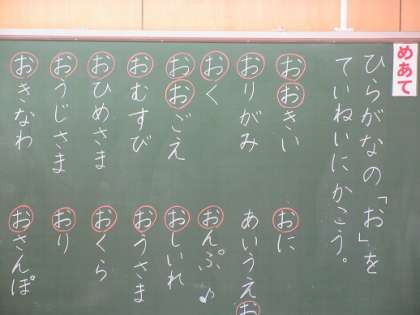 めあて
ひらがなの「お」を
ていねいにかこう。
おおきい
おに
おりがみ
あいうえお
おく
おんぷ♪
おおごえ
おしいれ
おむすび
おうさま
おひめさま
おくら
おうじさま
おり
おきなわ
おさんぽ